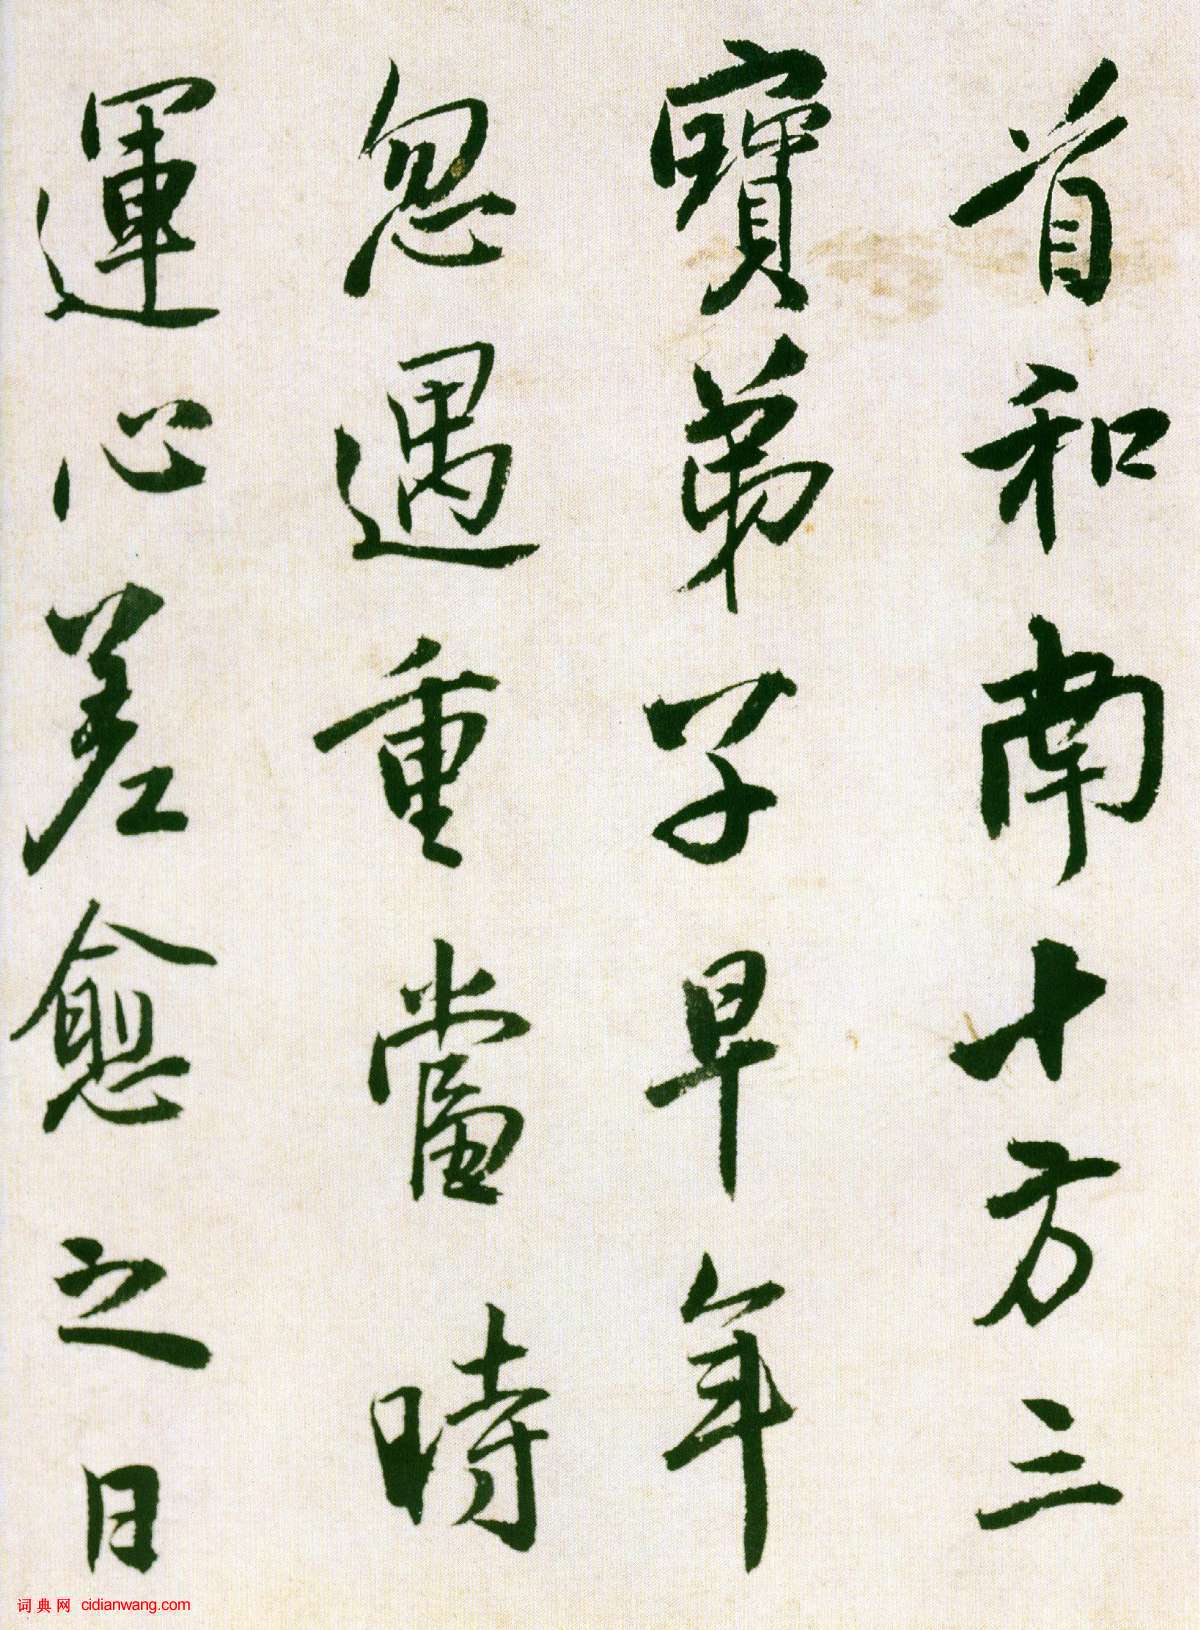 首和南十方三
寶弟子早年
忽遇重當時
運心差愈之日
词典网 cidianwang.com